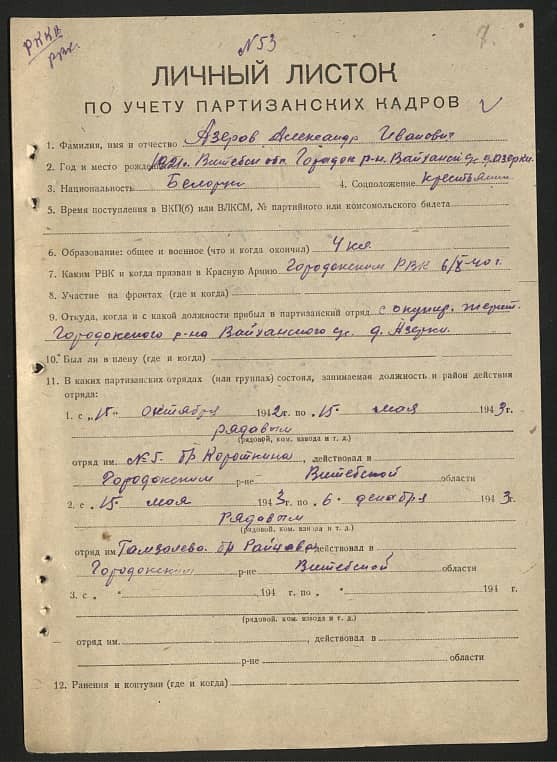 РККА
РВК.
N 53
7.
ЛИЧНЫЙ ЛИСТОК
ПО УЧЕТУ ПАРТИЗАНСКИХ КАДРОВ
1. Фамилия, имя и отчество Азеров Александр Иванович
2. Год и место рожде 1921г. Витебск обл. Городок р-н. Вайханск с/с д. Азерки.
3. Национальность Белорус 4. Соцположение крестьянин
5. Время поступления в ВКП(б) или ВЛКСМ, № партийного или комсомольского билета
6. Образование: общее и военное (что и когда окончил) 4 кл.
7. Каким РВК и когда призван в Красную Армию Городокским РВК 6/X-40 г.
8. Участие на фронтах (где и когда)
9. Откуда, когда и с какой должности прибыл в партизанский отряд с окупир.
Городокского р-на Вайханского с/с. д. Азерки.
10. Был ли в плену (где и когда)
11. В каких партизанских отрядах (или группах) состоял, занимаемая должность и район действия
отряда:
1. с „15" октября 1942 г. по „15. мая 1943 г.
рядовым
(рядовой, ком. взвода и т. д.)
отряд им. №5. бр Короткина, действовал в
Городокским р-не Витебской области
2. с „15. мая 1943 г. по „6. декабря 1943 г.
Рядовым
(рядовой, ком. взвода и т. д.)
отряд им бр Райцева действовал в
Городокским р-не Витебской области
3. с „ " 194 г. по „ " 194 г.
(рядовой, ком. взвода и т. д.)
отряд им. , действовал в
р-не области
12. Ранения и контузии (где и когда)